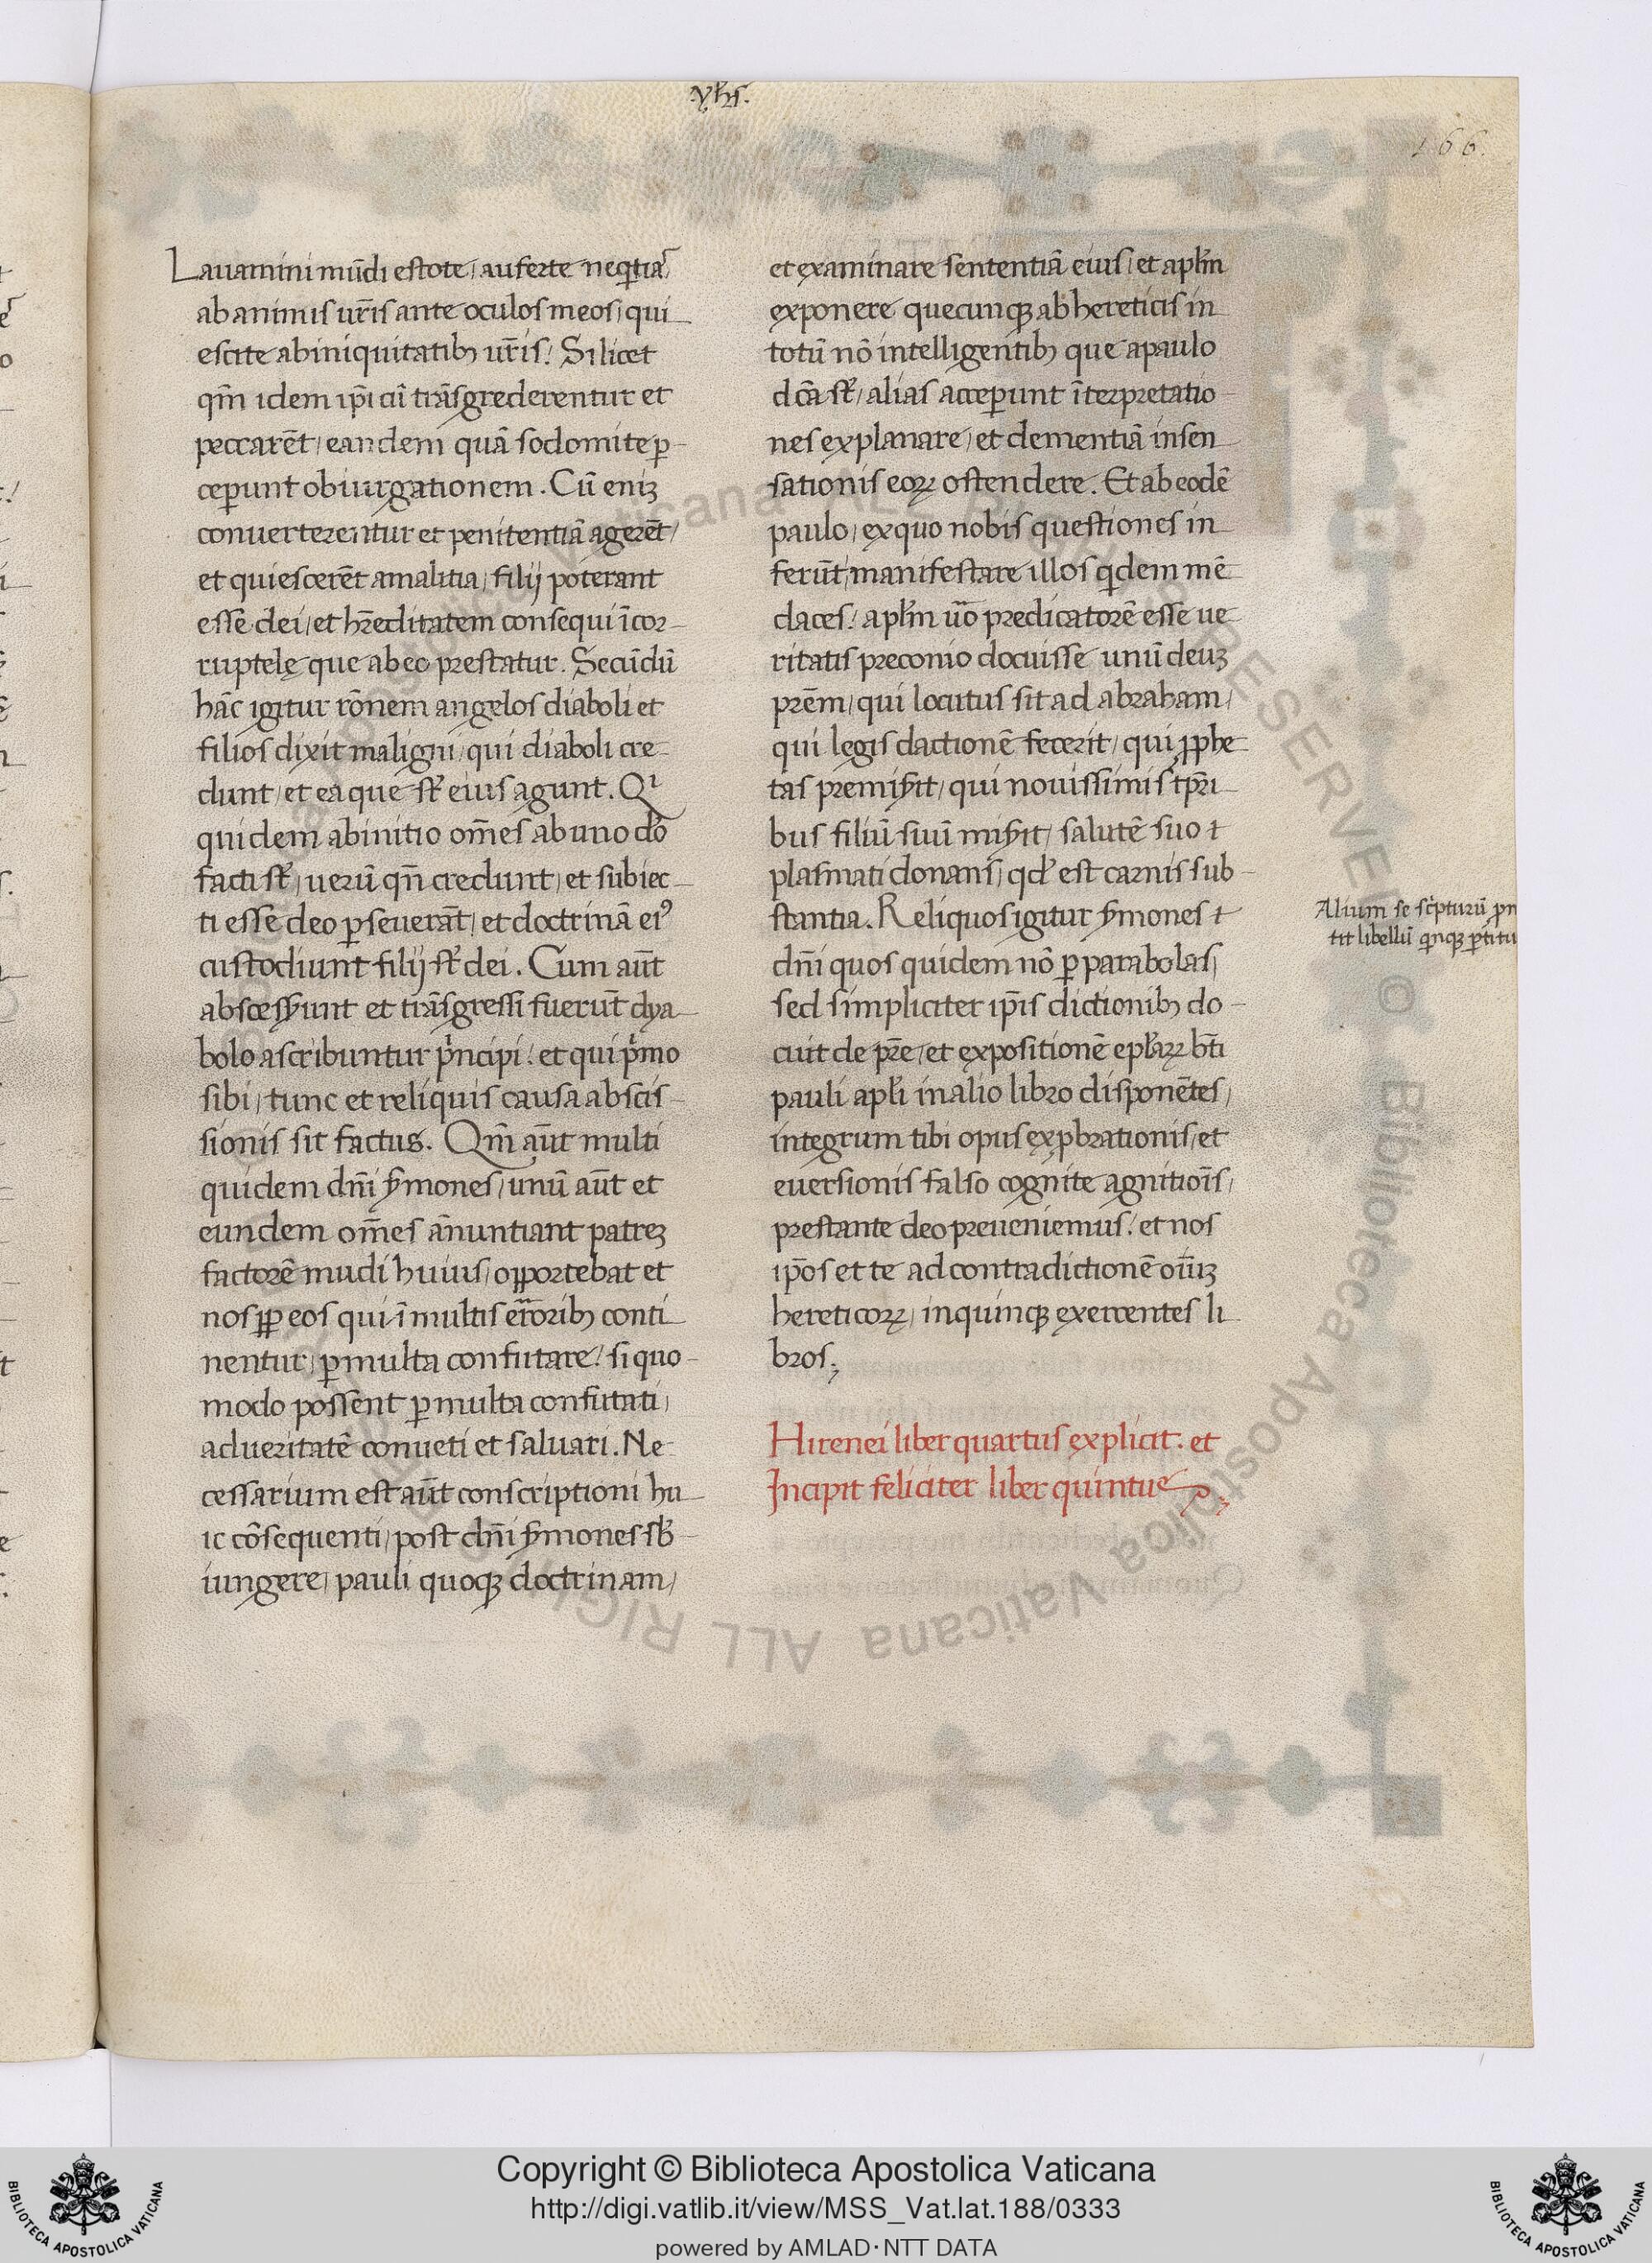 .yhs.
166.
Lauamini mūdi estote, auferte neq̄tiā
ab animis ur̄is ante oculos meos, qui
escite ab iniquitatibȝ ur̄is! Si licet
qm̄ idem ip̄i cū trāsgrederentur et
peccarēt, eandem quā sodomite ꝑ
ceꝑunt obiurgationem. Cū eniȝ
conuerterentur et penitentiā agerēt,
et quiescerēt a malitia, filij poterant
esse dei, et hr̄editatem consequi īcor
ruptelę que ab eo prestatur. Secūdū
hāc igitur rōnem angelos diaboli et
filios dixit maligni, qui diabolo cre
dunt, et ea que st̄ eius agunt. Qͥ
quidem ab initio om̄es ab uno dō
facti st̄, uerū qn̄ credunt, et subiec
ti esse deo ꝑseuerāt, et doctrinā eiꝰ
custodiunt filij st̄ dei. Cum aūt
abscesẜunt et trāsgressi fuerūt dya
bolo ascribuntur pͥncipi! et qui pͥmo
sibi, tunc et reliquis causa abscis
sionis sit factus. Qm̄ aūt multi
quidem dn̄i ẜmones, unū aūt et
eundem om̄es ānuntiant patreȝ
factorē mudi huius, oꝓportebat et
nos ꝓp eos qui ī multis er̄roribȝ conti
nentur, ꝑ multa confutare! si quo
modo possent ꝑ multa confutati,
ad ueritatē conueti et saluari. Ne
cessarium est aūt conscriptioni hu
ic cōsequenti, post dn̄i ẜmones sb̄
iungere, pauli quoqȝ doctrinam,
et examinare sententiā eius, et apl̄m
exponere quecunqȝ ab hereticis in
totū nō intelligentibȝ que a paulo
dc̄a st̄, alias acceꝑunt īterpretatio
nes explanare, et dementiā insen
sationis eoꝝ ostendere. Et ab eodē
paulo, ex quo nobis questiones in
ferūt, manifestare illos qͥdem mē
daces! apl̄m ūo predicatorē esse ue
ritatis preconio docuisse unū deuȝ
pr̄em, qui locutus sit ad abraham,
qui legis dactionē fecerit, qui ꝓphe
tas premiẜit, qui nouissimis tp̄ri
bus filiū suū miẜit, salutē suo t
plasmati donans, qd̄ est carnis sub
stantia. Reliquos igitur ẜmones t
dn̄i quos quidem nō ꝑ parabolas,
sed simpliciter ip̄is dictionibȝ do
cuit de pr̄e, et expositionē epl̄aꝝ bt̄i
pauli apl̄i in alio libro disponētes,
integrum tibi opus explorationis, et
euersionis falso cognite agnitiōis,
prestante deo preueniemus! et nos
ip̄os et te ad contradictionē oīuȝ
hereticoꝝ, in quinqȝ exercentes li
bros;
Hirenei liber quartus explicit. et
Incipit feliciter liber quintus
Alium se scͥpturū ꝓm
tit libellū qͥnqȝ ꝑtitu
Copyright © Biblioteca Apostolica Vaticana
http://digi.vatlib.it/view/MSS_Vat.lat.188/0333
powered by AMLAD·NTT DATA
BIBLIOTECA APOSTOLICA VATICANA
BIBLIOTECA APOSTOLICA VATICANA